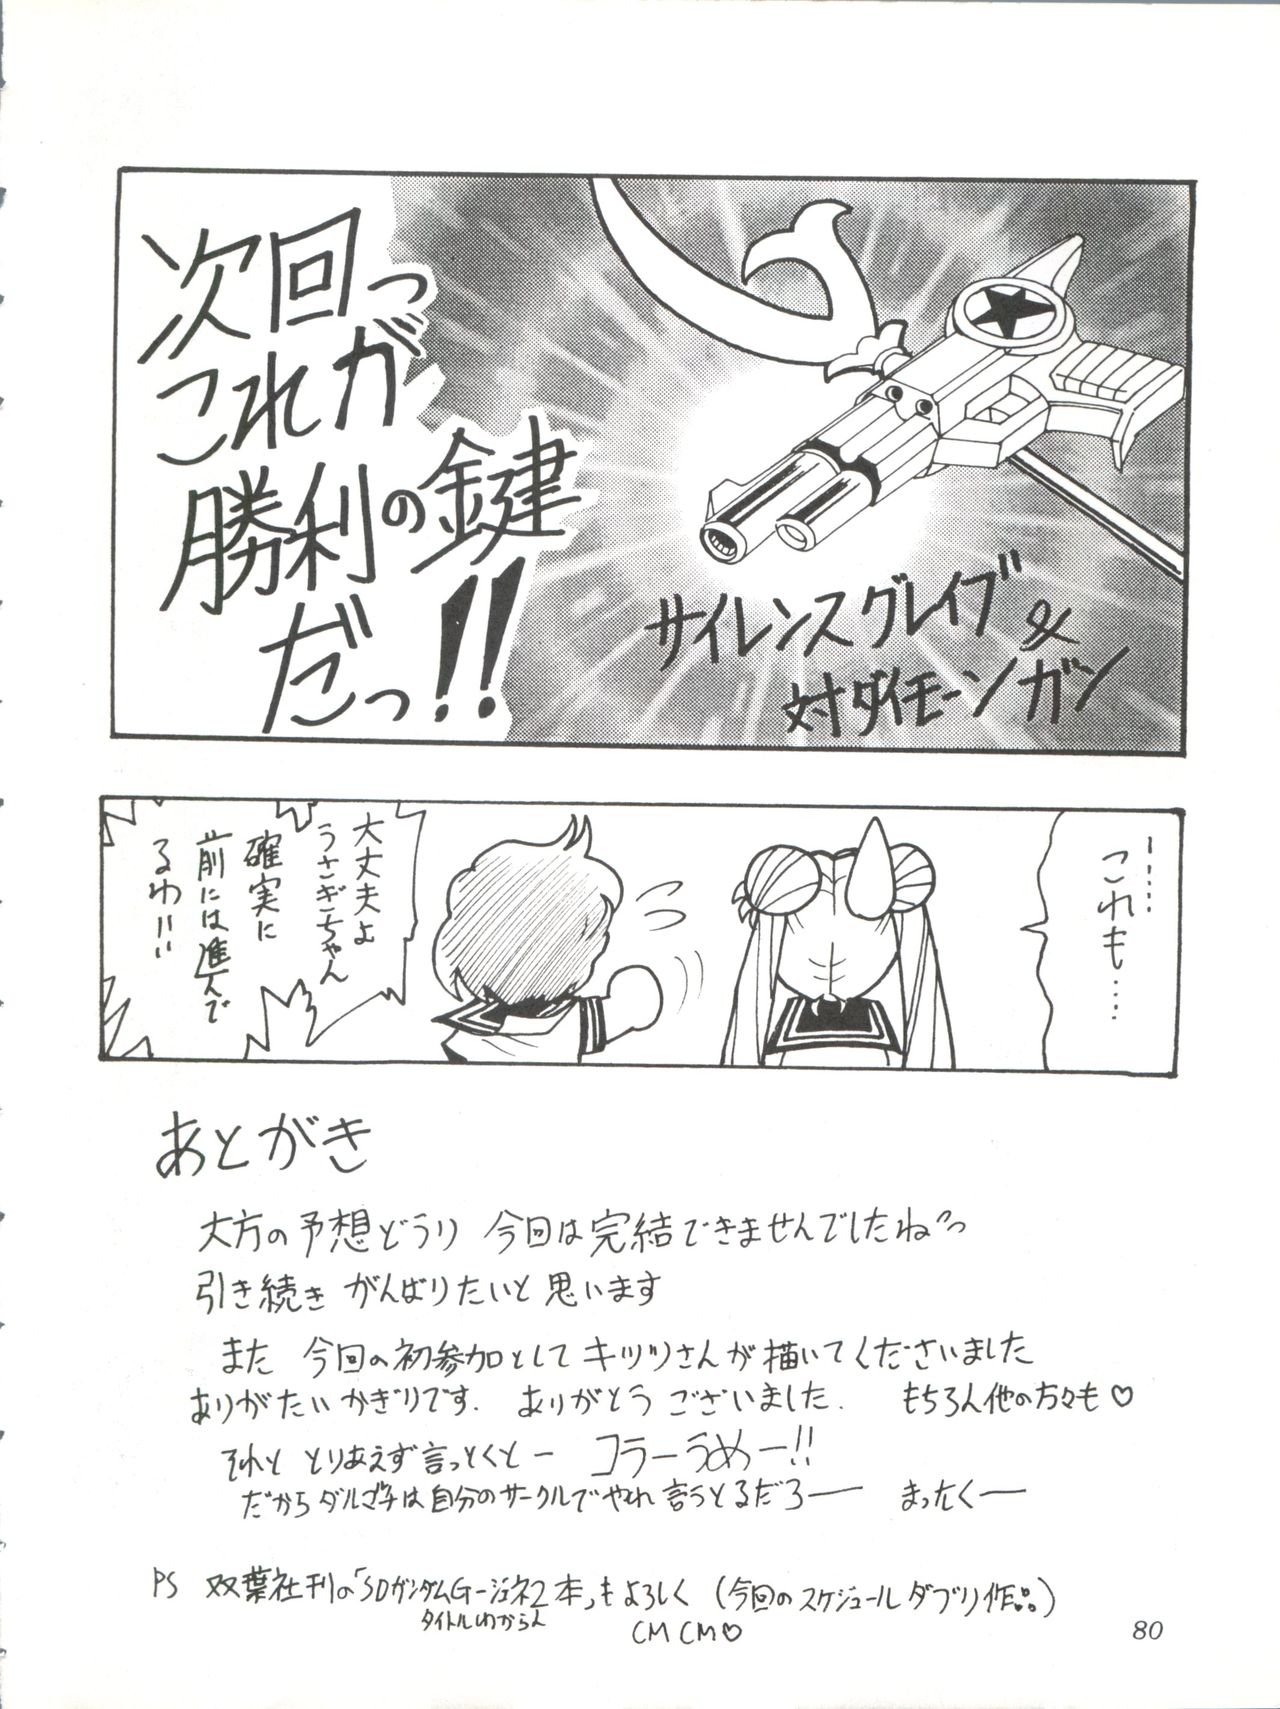 次回っ
これが
勝利の鍵
だっ!!
サイレンスグレイブ
&
対ダイモーンガン
……これも……
大丈夫よ
うさぎちゃん
確実に
前には進んで
るわ!!!
あとがき
大方の予想どうり 今回は完結できませんでしたねっ
引き続き がんばりたいと思います
また 今回の初参加としてキツツさんが描いてくださいました
ありがたいかぎりです. ありがとうございました. もちろん他の方々も♡
それと とりあえず言っとくと― コラーうめー!!
だからダルマ子は自分のサークルでやれ言うとるだろ―― まったく―
PS 双葉社刊の「SDガンダムG-ジェネ2本」もよろしく (今回のスケジュールダブリ作品)
タイトルわからん
CM CM♡
80